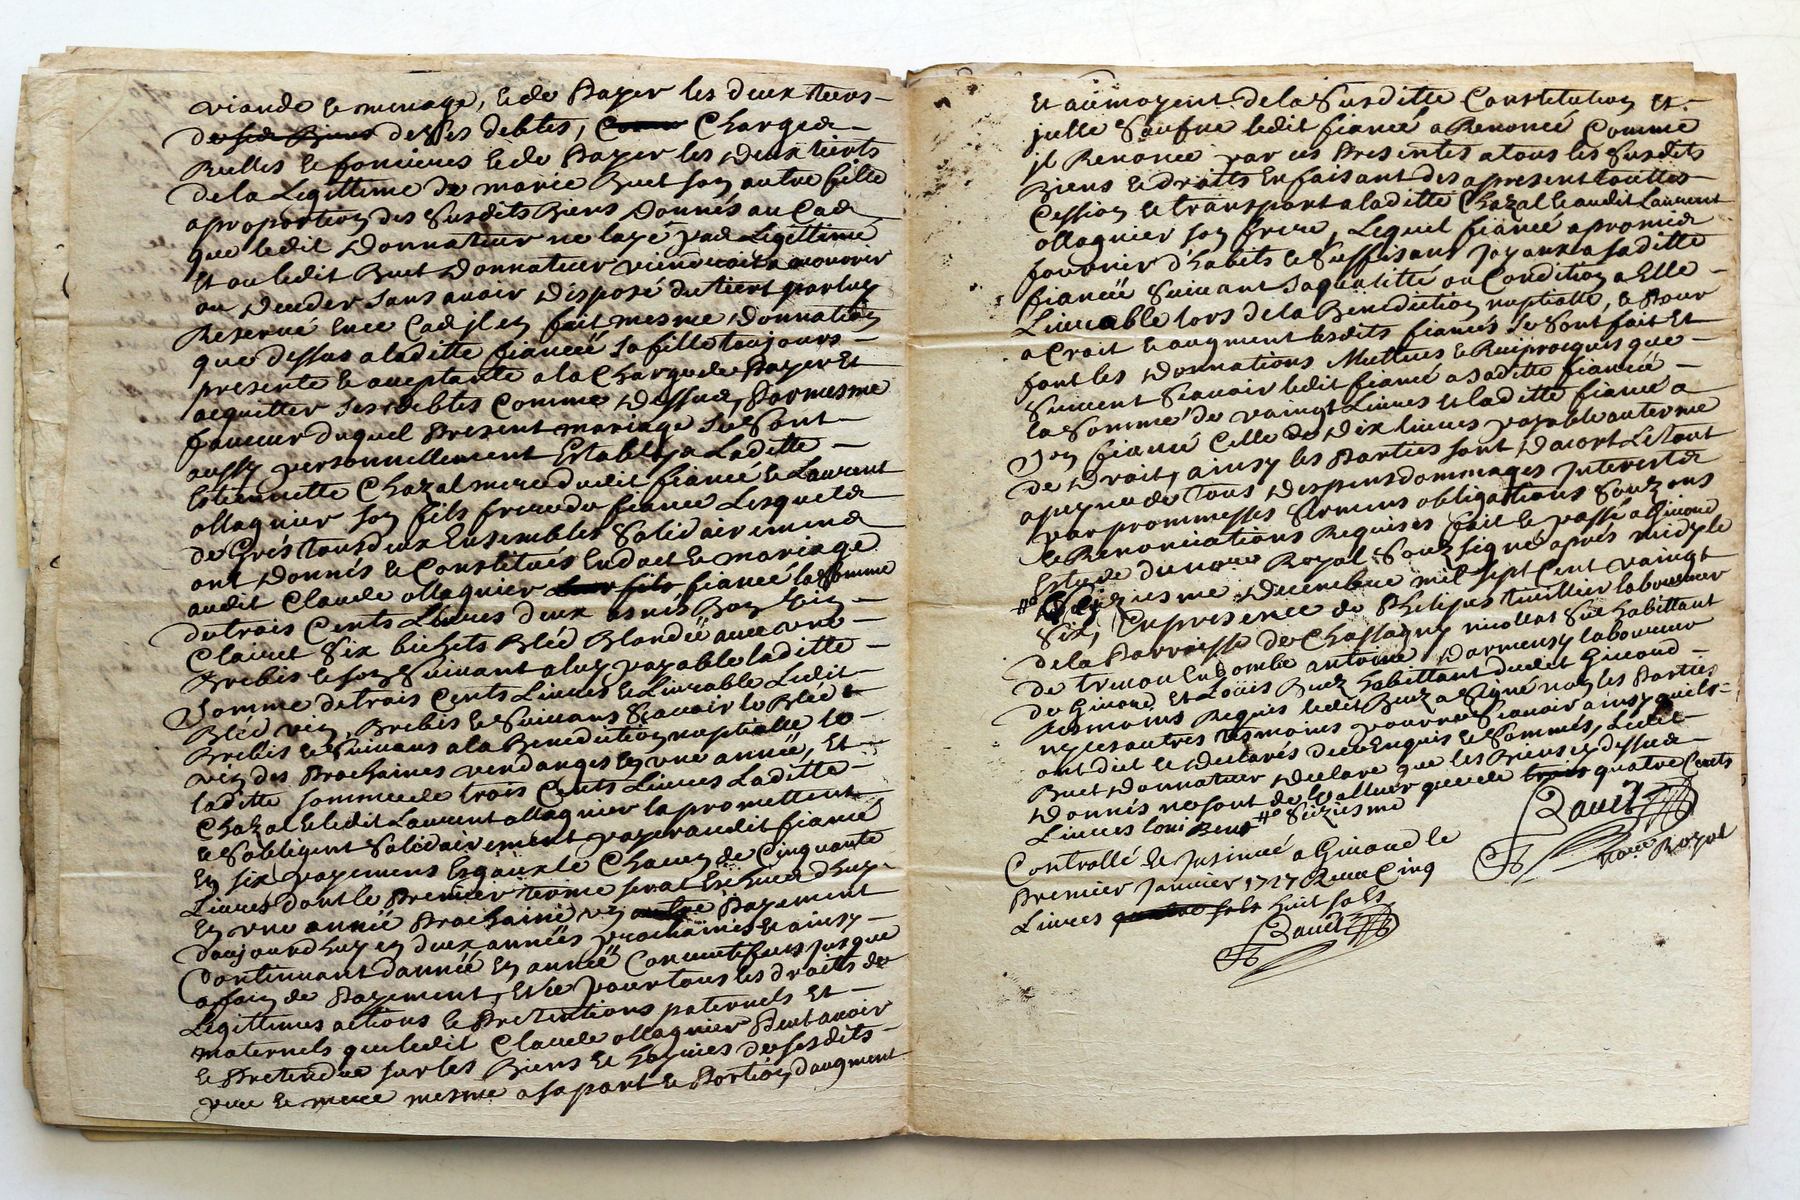 viande le menage, et de Payer les deux tiers
de ses Biens desdits debtes, Charges
Reelles et foncieres et de Payer les deux tierts
de la Legittime de marie Buet son autre fille
a proportion des Susdits Biens Donnés au Cas
que ledit Donnateur ne laye pas Legittimé
Et ou ledit Buet Donnateur viendroit a mourir
ou deceder sans avoir disposé du tiert par luy
Reservé en ce Cas jl en fait mesme Donnation
que dessus a laditte fiancéé sa fille toujours
presente et aceptante a la Charge de Payer et
acquitter ses debtes Comme dessus, Par mesme
faveur duquel Present mariage Se Sont
aussy personnellement Establys Laditte
Estiennette Chazal mere dudit fiancé et Laurent
ollagnier son fils frere du fiancé Lesquels
de Grés tous deux Ensembles Solidairement
ont Donnés et Constitués En dot et mariage
audit Claude ollagnier leur fils fiancé la Somme
de trois Cents Livres deux asnés Bon vin
Clairet Six bichets Bled Blondéé avec une
Brebis et son Suivant a luy payable laditte
Somme de trois Cents Livres et Livrable Ledit
Bléd vin, Brebis et Suivans Scavoir le Bléd
Brebis et Suivans a la Benediction nuptialle le
vin des Prochaines vendanges en une année, Et
laditte somme de trois Cents Livres Laditte
Chazal et ledit Laurent ollagnier la promettent
et S'obligent Solidairement payer audit fiancé
En six payemens Esgaux de Chacun de Cinquante
Livres dont le Premier terme serat Escheu d'huy
En une année Prochaine un autre Payement
d'aujourdhuy en deux années prochaines et ainsy
Continuant d'année en année Consecutifves jusque
a fain de Payement, Et ce pour tous les droits de
Legittimes actions et Pretentions paternels Et
maternels que ledit Claude ollagnier Peut avoir
et Pretendre sur les Biens et hoyries de sesdits
pere et mere mesme a sa part et Portion d'augment
Et au moyent de la Susditte Constitution Et
jcelle Saufve ledit fiancé a Renoncé Comme
jl Renonce par ces Presentes a tous les Susdits
Biens et droits En faisant des a present touttes
Cession et transport a laditte Chazal et audit Laurent
ollagnier son frere, Lequel fiancé a promis
fournir d'habits et Suffisans Joyaux a saditte
fiancéé Suivant Sa qualitté ou Condition a Elle
Livrable lors de la Bénédiction nuptialle, et Pour
acroit et augment lesdits fiancés se Sont fait Et
font les Donnations Mutties et Reciprocques que
Suivent Scavoir ledit fiancé a saditte fiancéé
la Somme de vaingt Livres Et laditte fiancé a
Son fiancé Celle de Dix livres payable au terme
de Droit, ainsy les Parties sont dacort Et tout
a peyne de tous despens dommages Interests
par prommesses sermens obligations Soubz ons
et Renonciations Requises fait et passé a Givord
Estude du nore Royal Soubsigné aprés midy le
# Seiziesme Decembre mil sept Cent vaingt
Six, En presence de Phelipes tuillier laboureur
de la Parroisse de Chassagny nicollas Sue habittant
de treuou En dombe antoine Darmensy laboureur
de Givord, Et Loüis Buez habittant dudit Givord
tesmoins Requis ledit Buez a Signé non les Parties
ny les autres tesmoins pour ne Scavoir ainsy quils
ont dict et declarés de ce Enquis et Sommés, Ledit
Buet Donnateur declare que les Biens cy dessus
Donnés ne sont de Valleur que de trois quatre Cents
Livres #e Seiziesme
Zavit
nore Royal
Controllé et Jnsinué a Givord le
Premier Janvier 1727 Receu Cinq
Livres quatre sols huit sols
Zavit